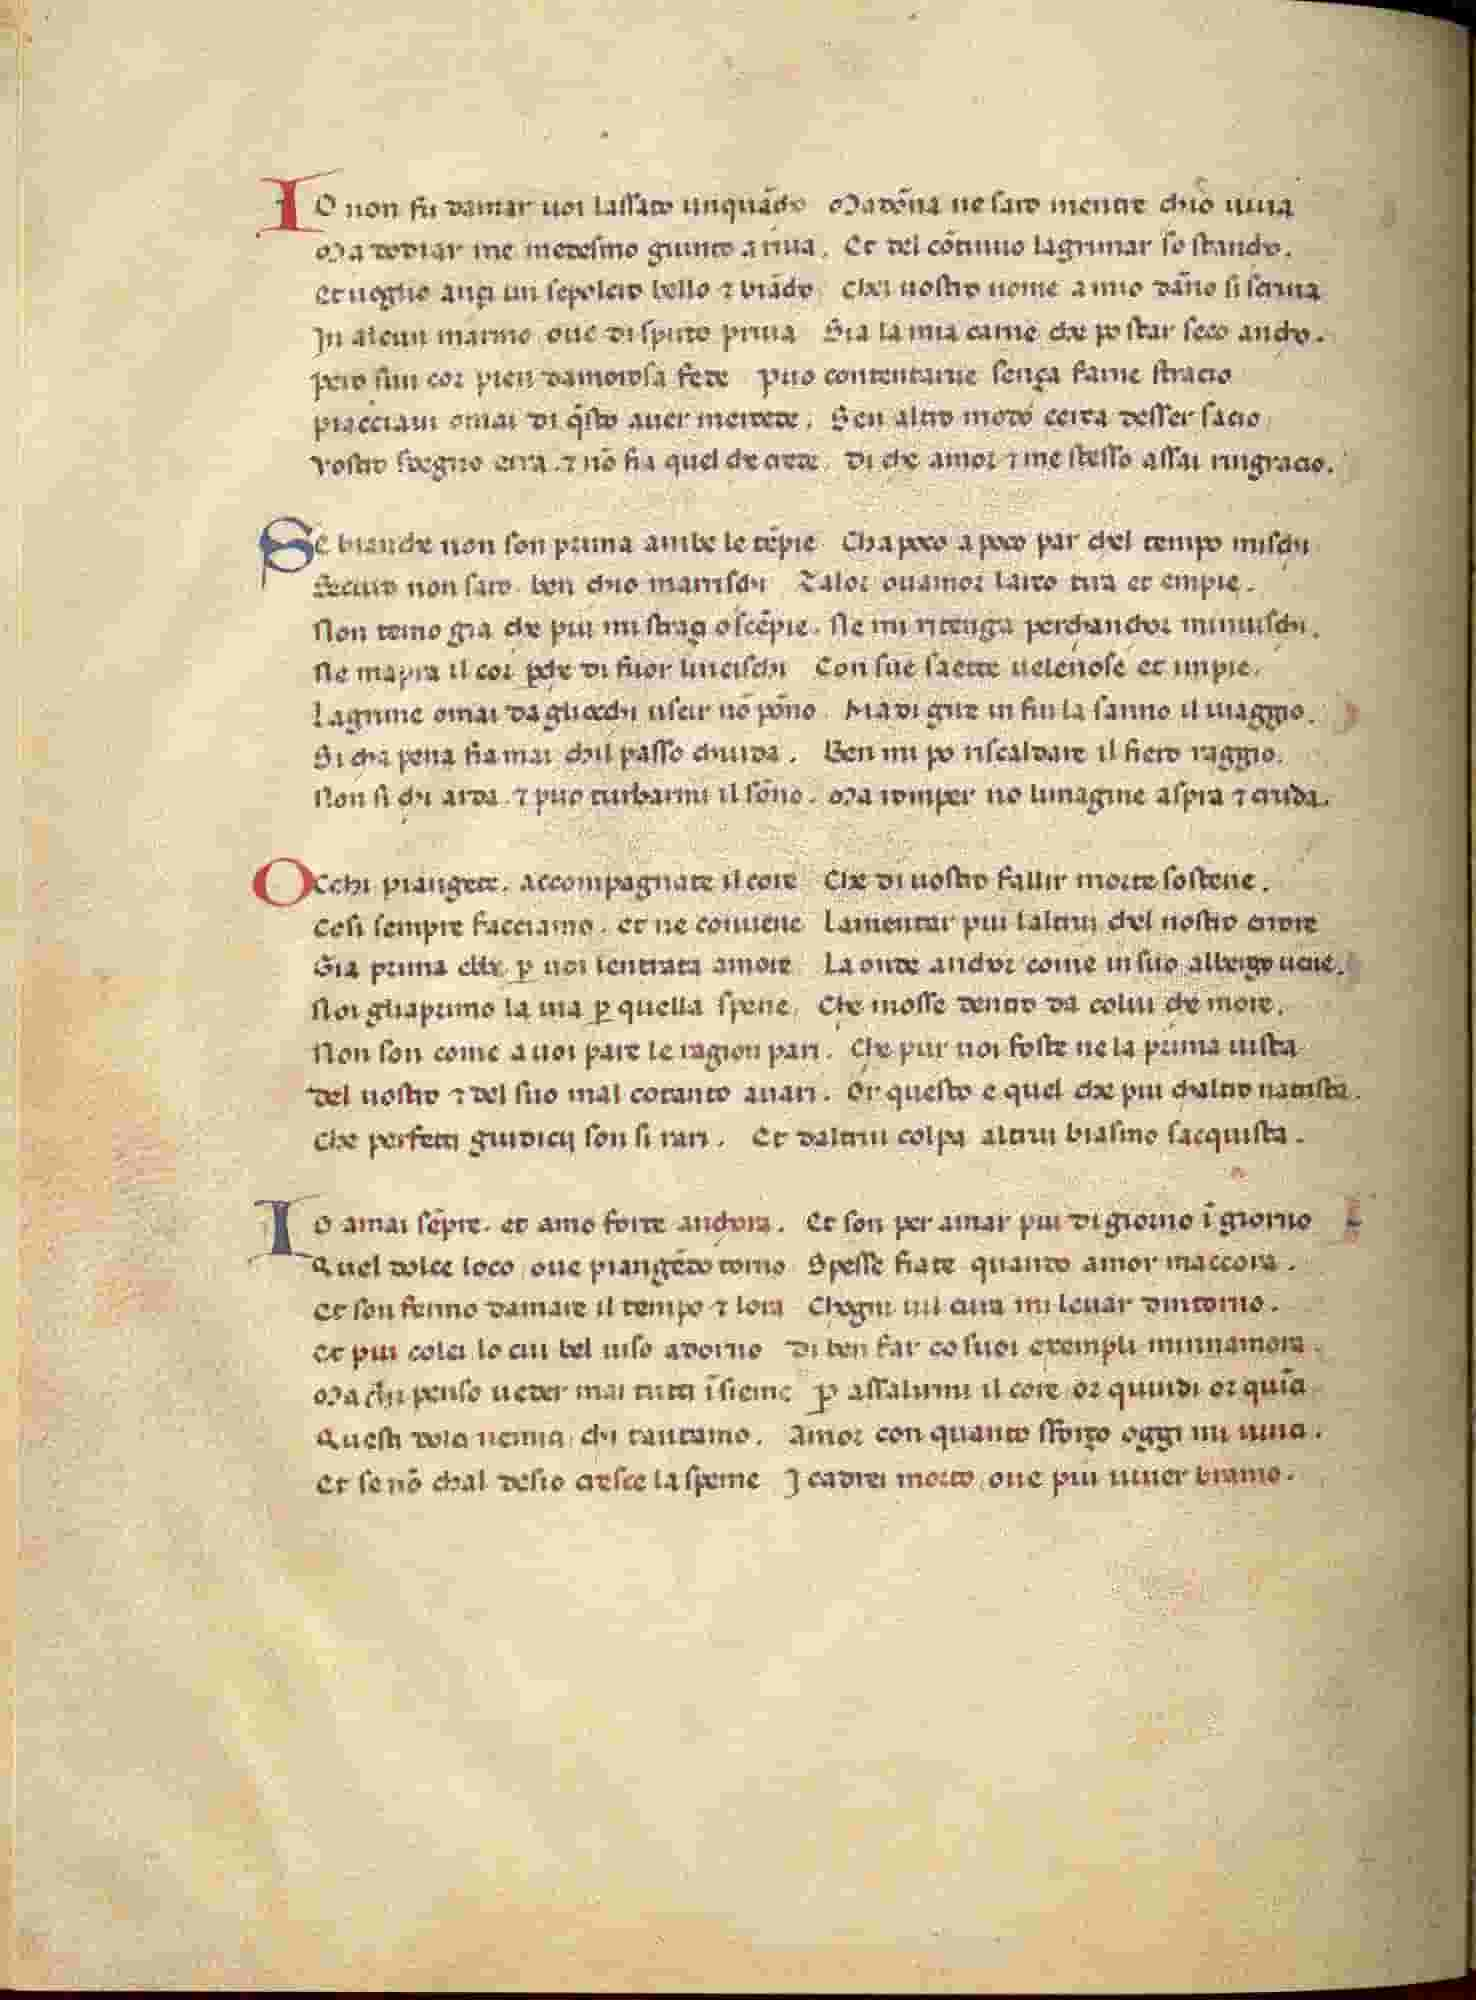 IO non fu damar uoi lassato unquãdo Madõna ne saro mentre chio uiua
Ma dodiar me medesmo giunto a riua. Et del cõtinuo lagrimar so stancho.
Et uoglio ançi un sepolcro bello ⁊ biãcho chel uostro nome a mio dãno si scriua
In alcun marmo oue di spirto priua Sia la mia carne che po star seco ancho.
Pero sun cor pien damorosa fede Puo contentarue sença farne stracio
Piacciaui omai di q̃sto auer mercede. Sen altro modo cerca desser sacio
Vostro sdegno erra. ⁊ nõ fia quel che crede. Di che amor ⁊ me stesso assai ringracio.
SE bianche non son prima ambe le tẽpie Cha poco a poco par chel tempo mischi
Securo non saro. ben chio marrischi Talor ouamor larco tira et empie.
Non temo gia che piu mi straçi o scẽpie. Ne mi ritenga perchanchor minuischi.
Ne mapra il cor ꝑche di fuor lincischi Con sue saette uelenose et impie.
Lagrime omai da gliocchi uscir nõ põno. Ma di gire in fin la sanno il uiaggio.
Si cha pena fia mai chil passo chiuda. Ben mi po riscaldare il fiero raggio.
Non si chi arda. ⁊ puo turbarmi il sõno. Ma romper no limagine aspra ⁊ cruda.
OCchi piangete. accompagnate il core Che di uostro fallir morte sostene.
Cosi sempre facciamo. et ne conuene Lamentar piu laltrui chel nostro errore
Gia prima ebbe ꝑ uoi lentrata amore La onde anchor come in suo albergo uene.
Noi gliaprimo la uia ꝑ quella spene. Che mosse dentro da colui che more.
Non son come a uoi pare le ragion pari. Che pur uoi foste ne la prima uista
Del uostro ⁊ del suo mal cotanto auari. Or questo e quel che piu chaltro natrista.
Che perfetti giudicij son si rari. Et daltrui colpa altrui biasmo sacquista.
IO amai sẽpre. et amo forte anchora. Et son per amar piu di giorno ĩ giorno
Quel dolce loco oue piangẽdo torno Spesse fiate quando amor maccora.
Et son fermo damare il tempo ⁊ lora Chogni uil cura mi leuar dintorno.
Et piu colei lo cui bel uiso adorno Di ben far co suoi exempli minnamora.
Ma chi penso ueder mai tutti ĩsieme ꝑ assalirmi il core or quindi or quĩci
Questi dolci nemici chi tantamo. Amor con quanto sforço oggi mi uinci.
Et se nõ chal desio cresce la speme I cadrei morto oue piu uiuer bramo.